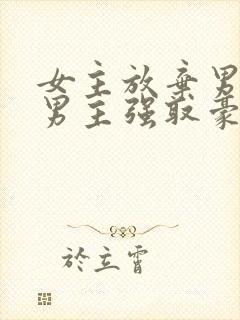 女主放弃男
男主强取豪
於立霄